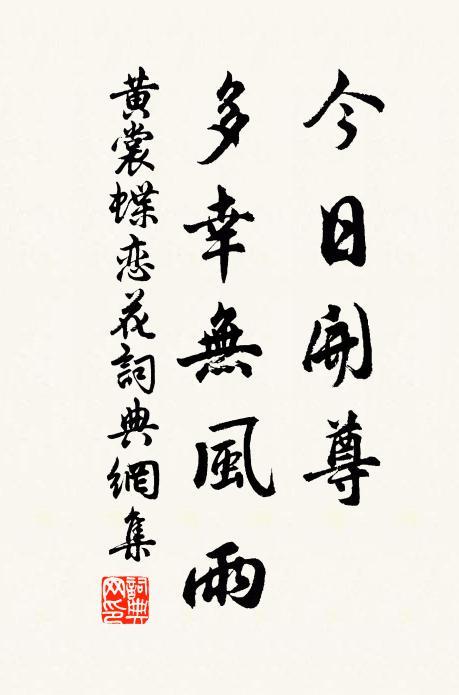 今日開尊
多幸無風雨
黄裳蝶恋花詞典網集
詞典網印